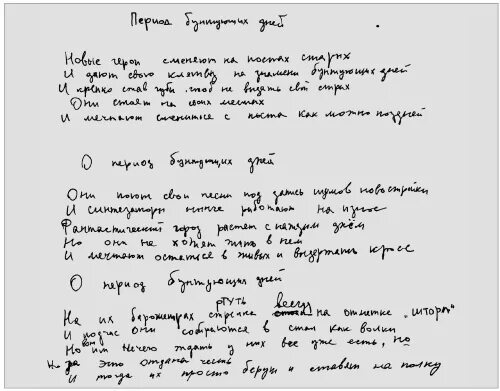 Период бунтующих дней
Новые герои сменяют на постах старых
И дают свою клятву на знамени бунтующих дней
И крепко сжав губы чтоб не выдать свой страх
Они стоят на своих местах
И мечтают смениться с поста как можно поздней
О период бунтующих дней
Они поют свои песни под запись шумов новостройки
И синтезаторы нынче работают на износ
Фантастический город растет с каждым днём
Но они не хотят жить в нем
И мечтают остаться в живых и выдержать кросс
О период бунтующих дней
ртуть всегда
На их барометрах стрелка на отметке „шторм"
И подчас они собираются в стаи как волки
Но им нечего ждать у них все уже есть, но
Но за это отдана честь
И тогда их просто беруи и ставят на полку